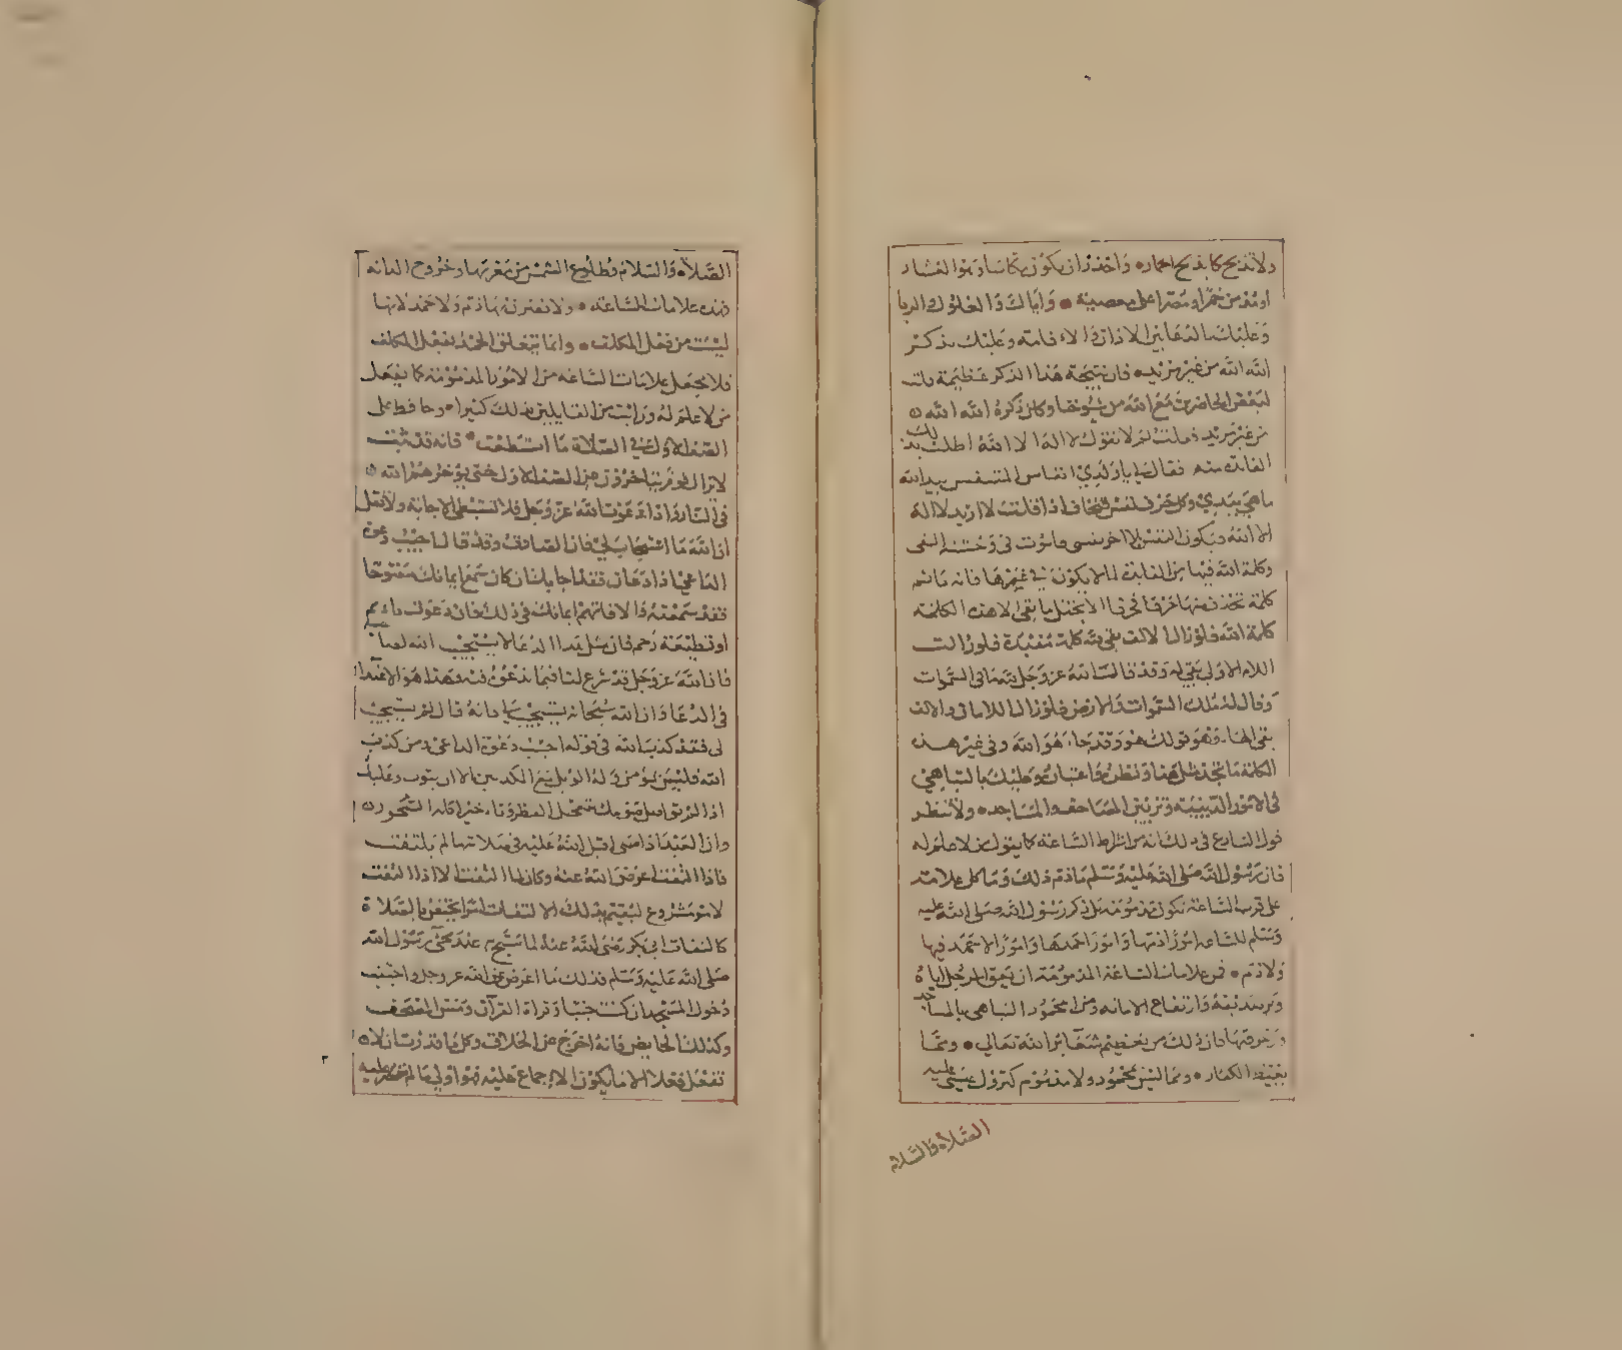 ولا تدبح كما يدبح الحمار واحذر ان يكون مكاسا وهو العشار
او مدمن خمر او مصرا على معصية واياك والغلول والربا
وعليك بالدعا بين الاذان والاقامة وعليك بذكر
الله الله من غير مزيد فان نتيجة هذا الذكر عظيمة قلت
لبعض الحاضرين مع الله من شيوخنا وكان ذكره الله الله
من غير مزيد فقلت له لم لا تقول لا اله الا الله اطلب بذلك
الفائدة منه فقال لي يا ولدي انفاس المتنفس بيد الله
ما هي بيدي وكل حرف نفس فاخاف اذا قلت لا اريد لا اله
الا الله فيكون النفس بلا اخر نفسي فاموت في وحشة النفي
وكلمة الله فيها من الفايدة ما لا يكون في غيرها فانه ما ثم
كلمة تحذف منها حرفا فحرفا الا يختل ما بقي الا هذه الكلمة
كلمة الله فلو زال الالف بقي لله كلمة مفيدة فلو زالت
اللام الاولى بقي له وقد قال الله عز وجل لله ما في السموات
وقال له ملك السموات والارض فلو زال اللامان والالف
بقي الها وهو قولك هو وقد جا هو الله وفي غير هذه
الكلمة ما تجد مثل هذا وعليك بالتباهي
في الامور الدينية وتزيين المصاحف والمساجد ولا تنظر
قول الشارع في ذلك انه من اشراط الساعة كما يقول من لا علم له
فان رسول الله صلى الله عليه وسلم ما ذم ذلك وما كل علامة
على قرب الساعة تكون مذمومة بل ذكر رسول الله صلى الله عليه
وسلم للساعة امورا ذمها وامورا حمدها وامورا لا حمد فيها
ولا ذم فمن علامات الساعة المذمومة ان يعق الرجل اباه
ويبر صديقه وارتفاع الامانة ومن المحمود التباهي بالمساجد
وزخرفتها فان ذلك من تعظيم شعائر الله تعالى ومما
يغيظ الكفار ومما ليس بمحمود ولا مذموم كنزول عيسى عليه
الصلاة والسلام
الصلاة والسلام وطلوع الشمس من مغربها وخروج الدابة
فهذه علامات الساعة ولا يقترن بها ذم ولا حمد لانها
ليست من فعل المكلف وانما يتعلق الحمد بفعل المكلف
فلا تجعل علامات الساعة من الامور المذمومة كما يفعل
من لا علم له ورايت من القايلين بذلك كثيرا وحافظ على
الصف الاول في الصلاة ما استطعت فانه قد ثبت
لا يزال قوم يتاخرون عن الصف الاول حتى يؤخرهم الله
في النار واذا دعوت الله عز وجل فلا تستبطى الاجابة ولا تقل
ان الله ما استجاب لي فانه الصادق وقد قال اجيب دعوة
الداعي اذا دعان فقد اجابك ان كان سمع ايمانك مفتوحا
فقد سمعته والا فاتهم ايمانك في ذلك فانه دعوت باثم
او قطيعة رحم فان مثل هذا الدعا لا يستجيب الله لصاحبه
فان الله عز وجل قد شرع لنا فيما ندعوه فيه فهذا هو الاعتدا
في الدعا وان الله سبحانه يستجيب للعبد ما دام قال لم يستجب
لي فقد كذب الله في قوله اجيب دعوة الداعي ومن كذب
الله فليس بمؤمن وله الويل مع المكذبين الا ان يتوب وعليك
اذا لم تواصل صومك بتعجيل الفطر وتاخير اكلة السحور
وان العبد اذا صلى اقبل الله عليه في صلاته ما لم يلتفت
فاذا التفت اعرض الله عنه وكان لما التفت الا اذا التفت
لامر مشروع ليقيم بذلك الالتفات امرا يختص بالصلاة
كالتفات ابي بكر رضي الله عنه لما سبح به عند مجي رسول الله
صلى الله عليه وسلم فذلك ما اعرض عن الله عز وجل واجتنب
دخول المسجد ان كنت جنبا وقراة القرآن ومس المصحف
وكذلك الحايض فانه اخرج عن الخلاف وكل ما قدرت ان لا
تفعل فعلا الا ما يكون الاجماع عليه فهو اولى ما لم تضطر اليه